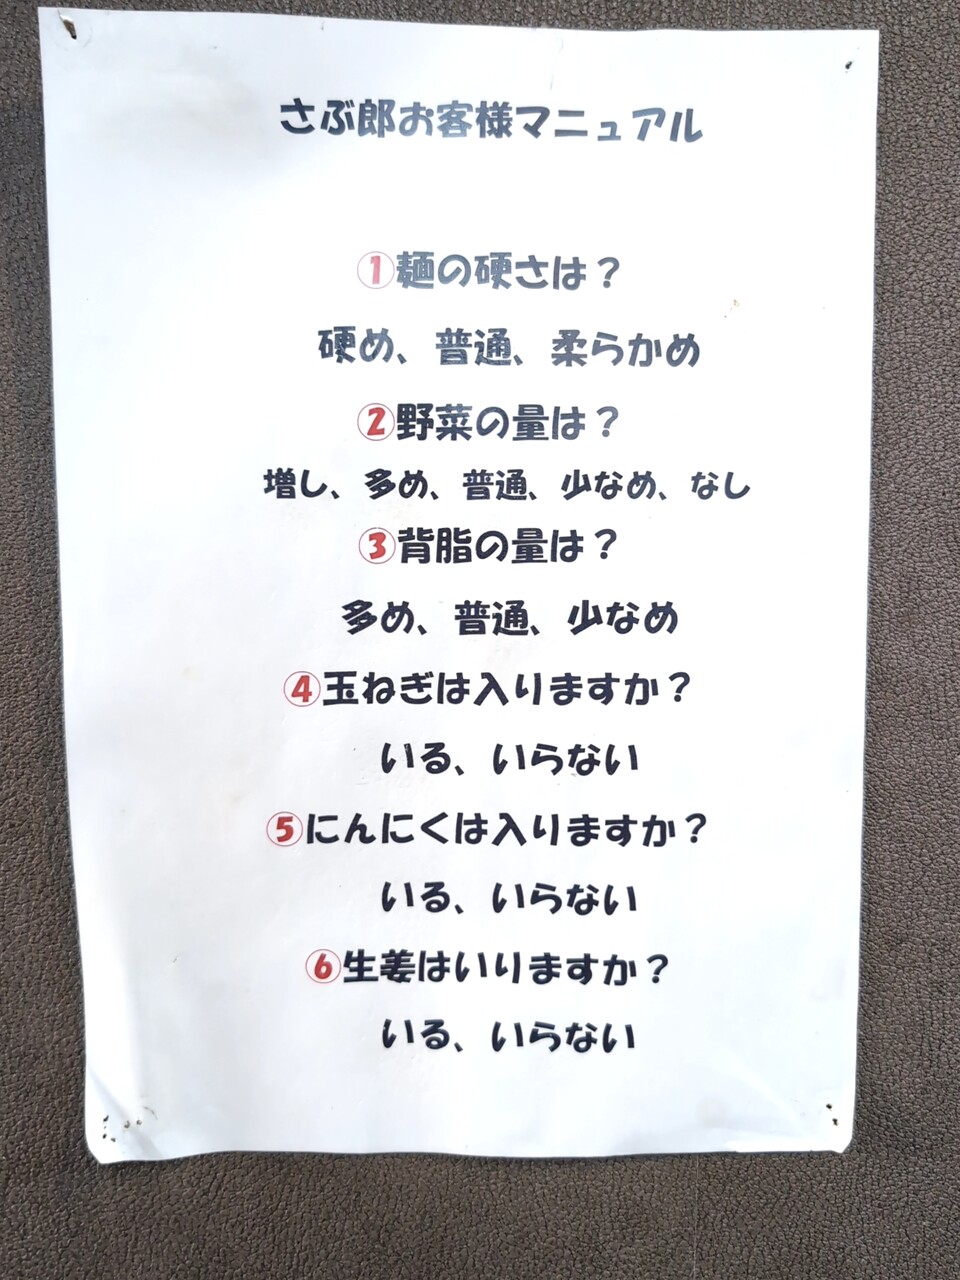 さぶ郎お客様マニュアル
①麺の硬さは？
硬め、普通、柔らかめ
②野菜の量は？
増し、多め、普通、少なめ、なし
③背脂の量は？
多め、普通、少なめ
④玉ねぎは入りますか？
いる、いらない
⑤にんにくは入りますか？
いる、いらない
⑥生姜はいりますか？
いる、いらない